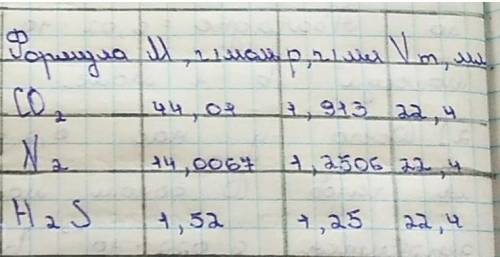 Формула М, г/моль ρ, г/мл Vm, мл.
CO₂ 44,01 1,913 22,4
N₂ 14,0067 1,2506 22,4
H₂S 1,52 1,25 22,4